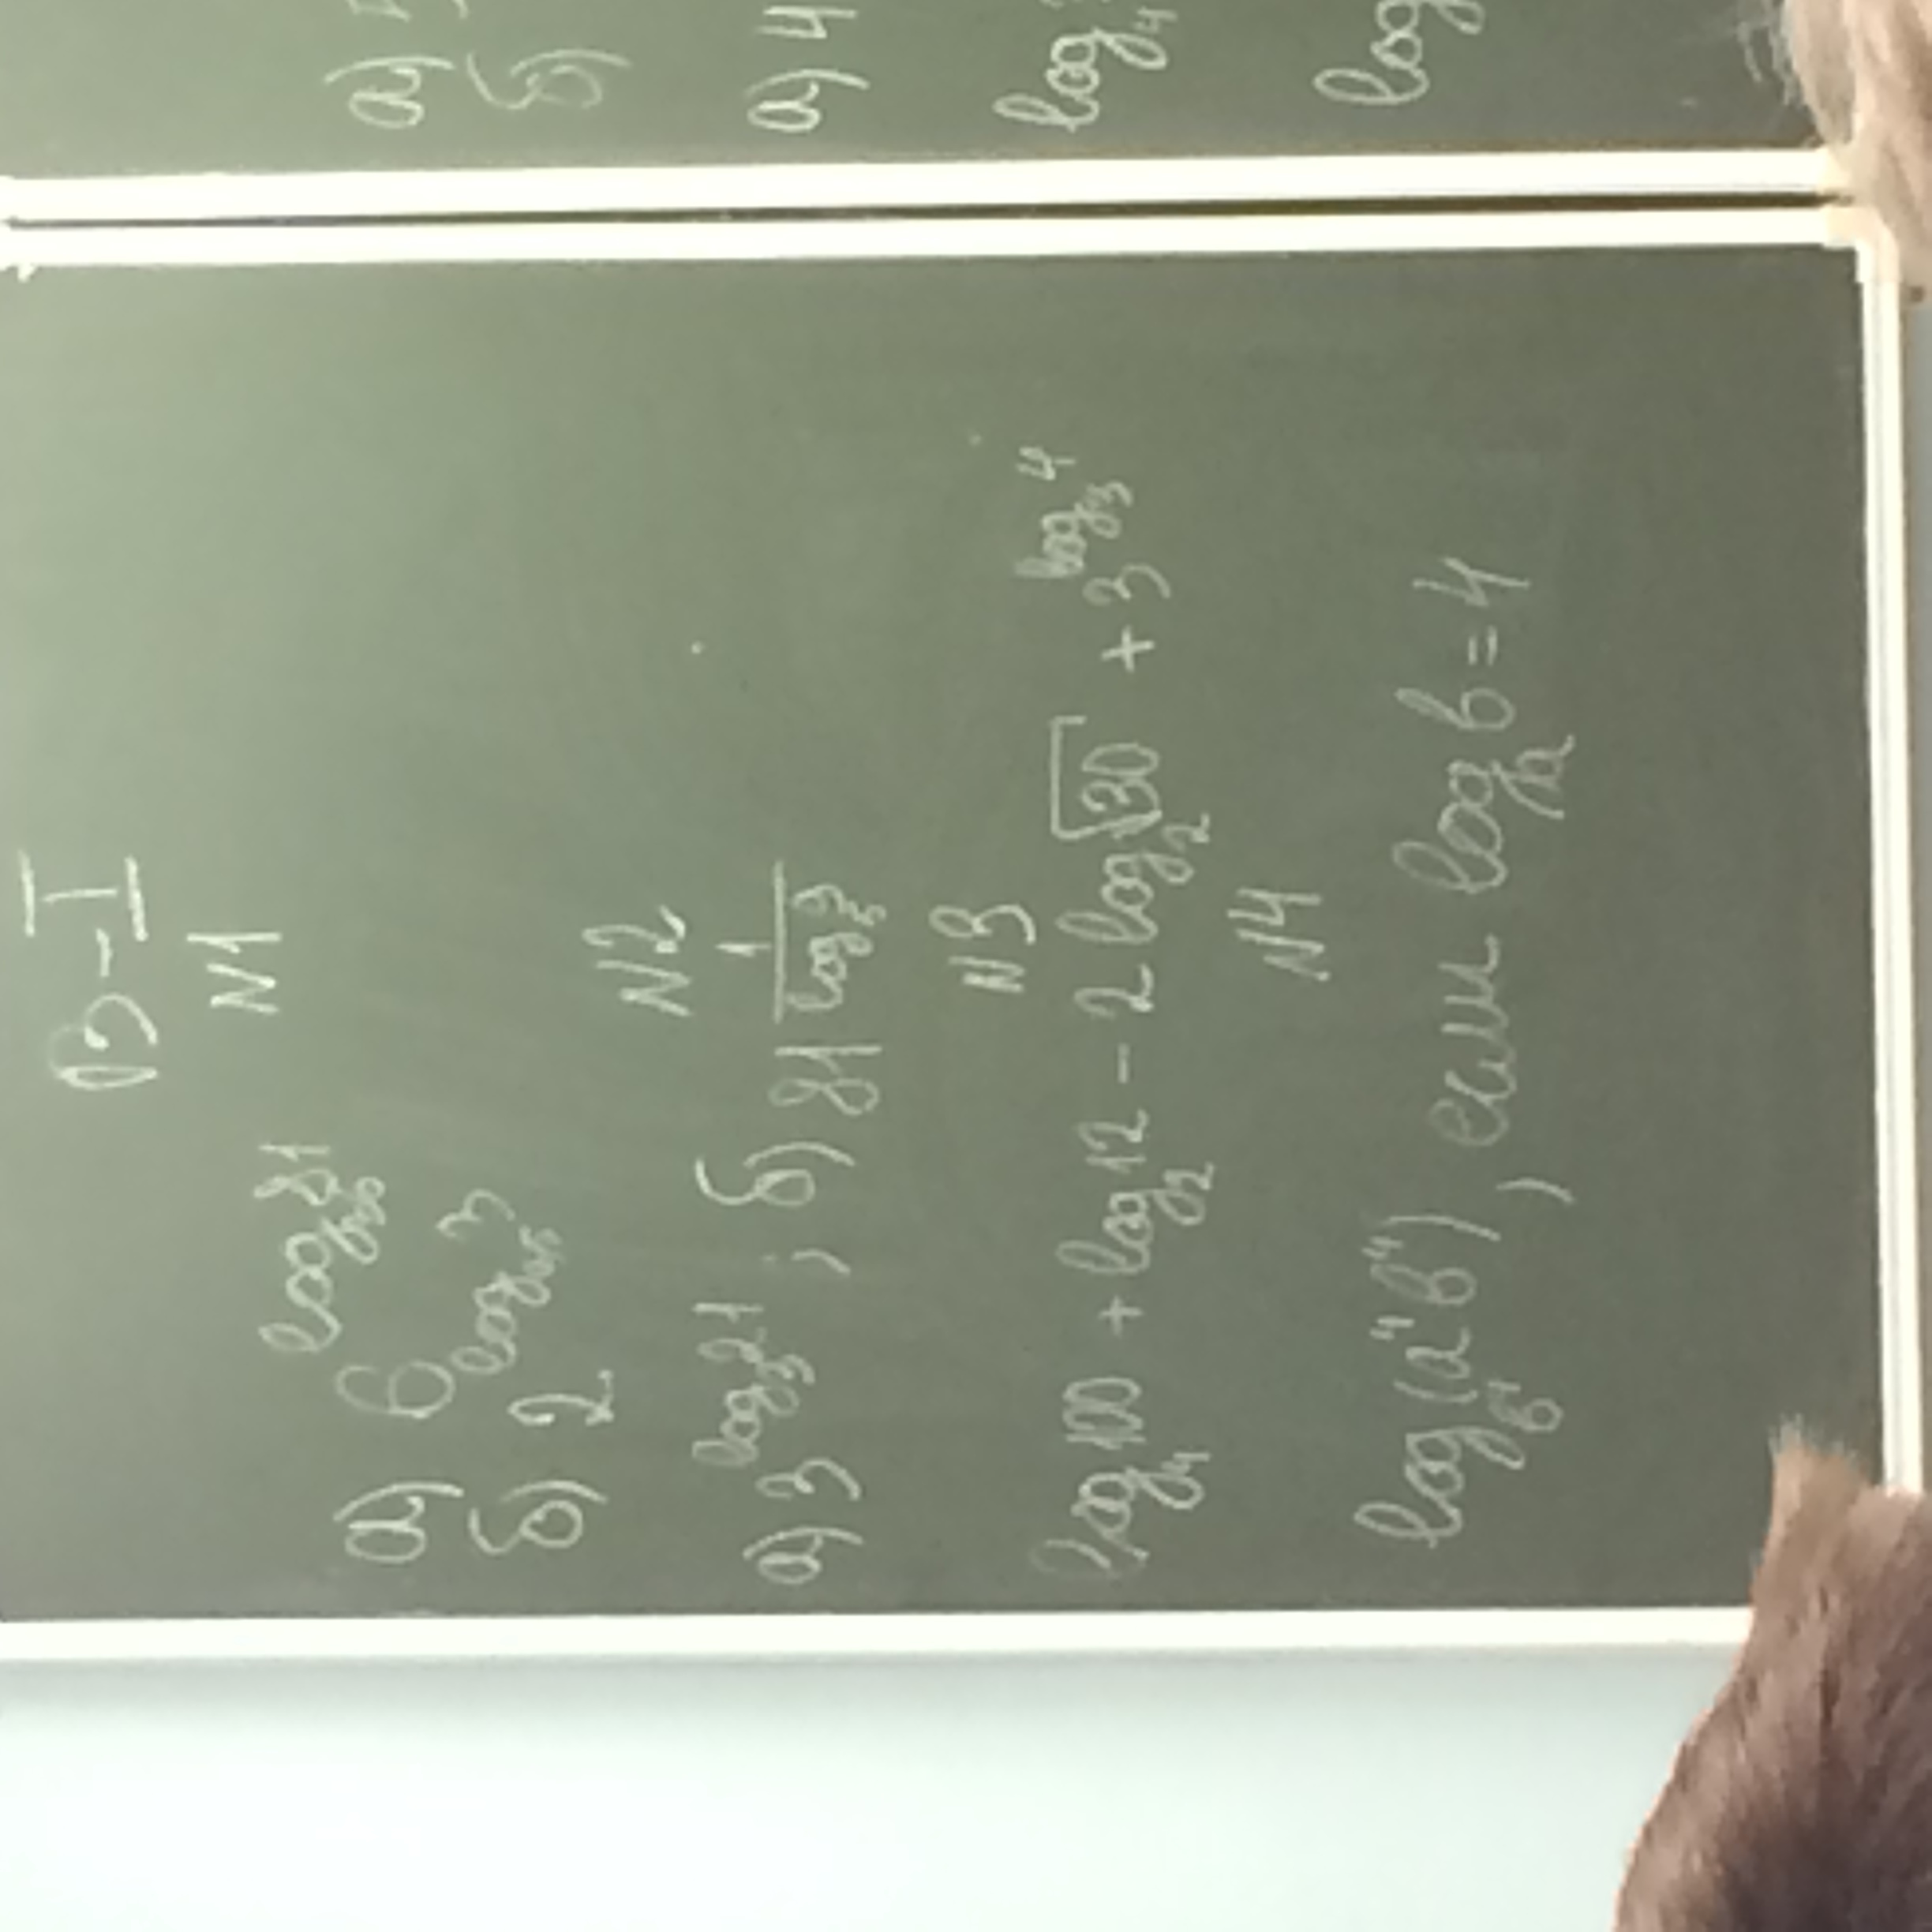 В-I
N1
а) 9^log₉ 81
б) 2^log
N2
а) 3^log ; б) 81^1/log
N3
log₄ 100 + log₂ 12 - 2 log₂ √30 + 3^log₃ 4
N4
log (a⁴ b⁴) , если logₐ b = 4
а)
б)
а) 4
log₄
log